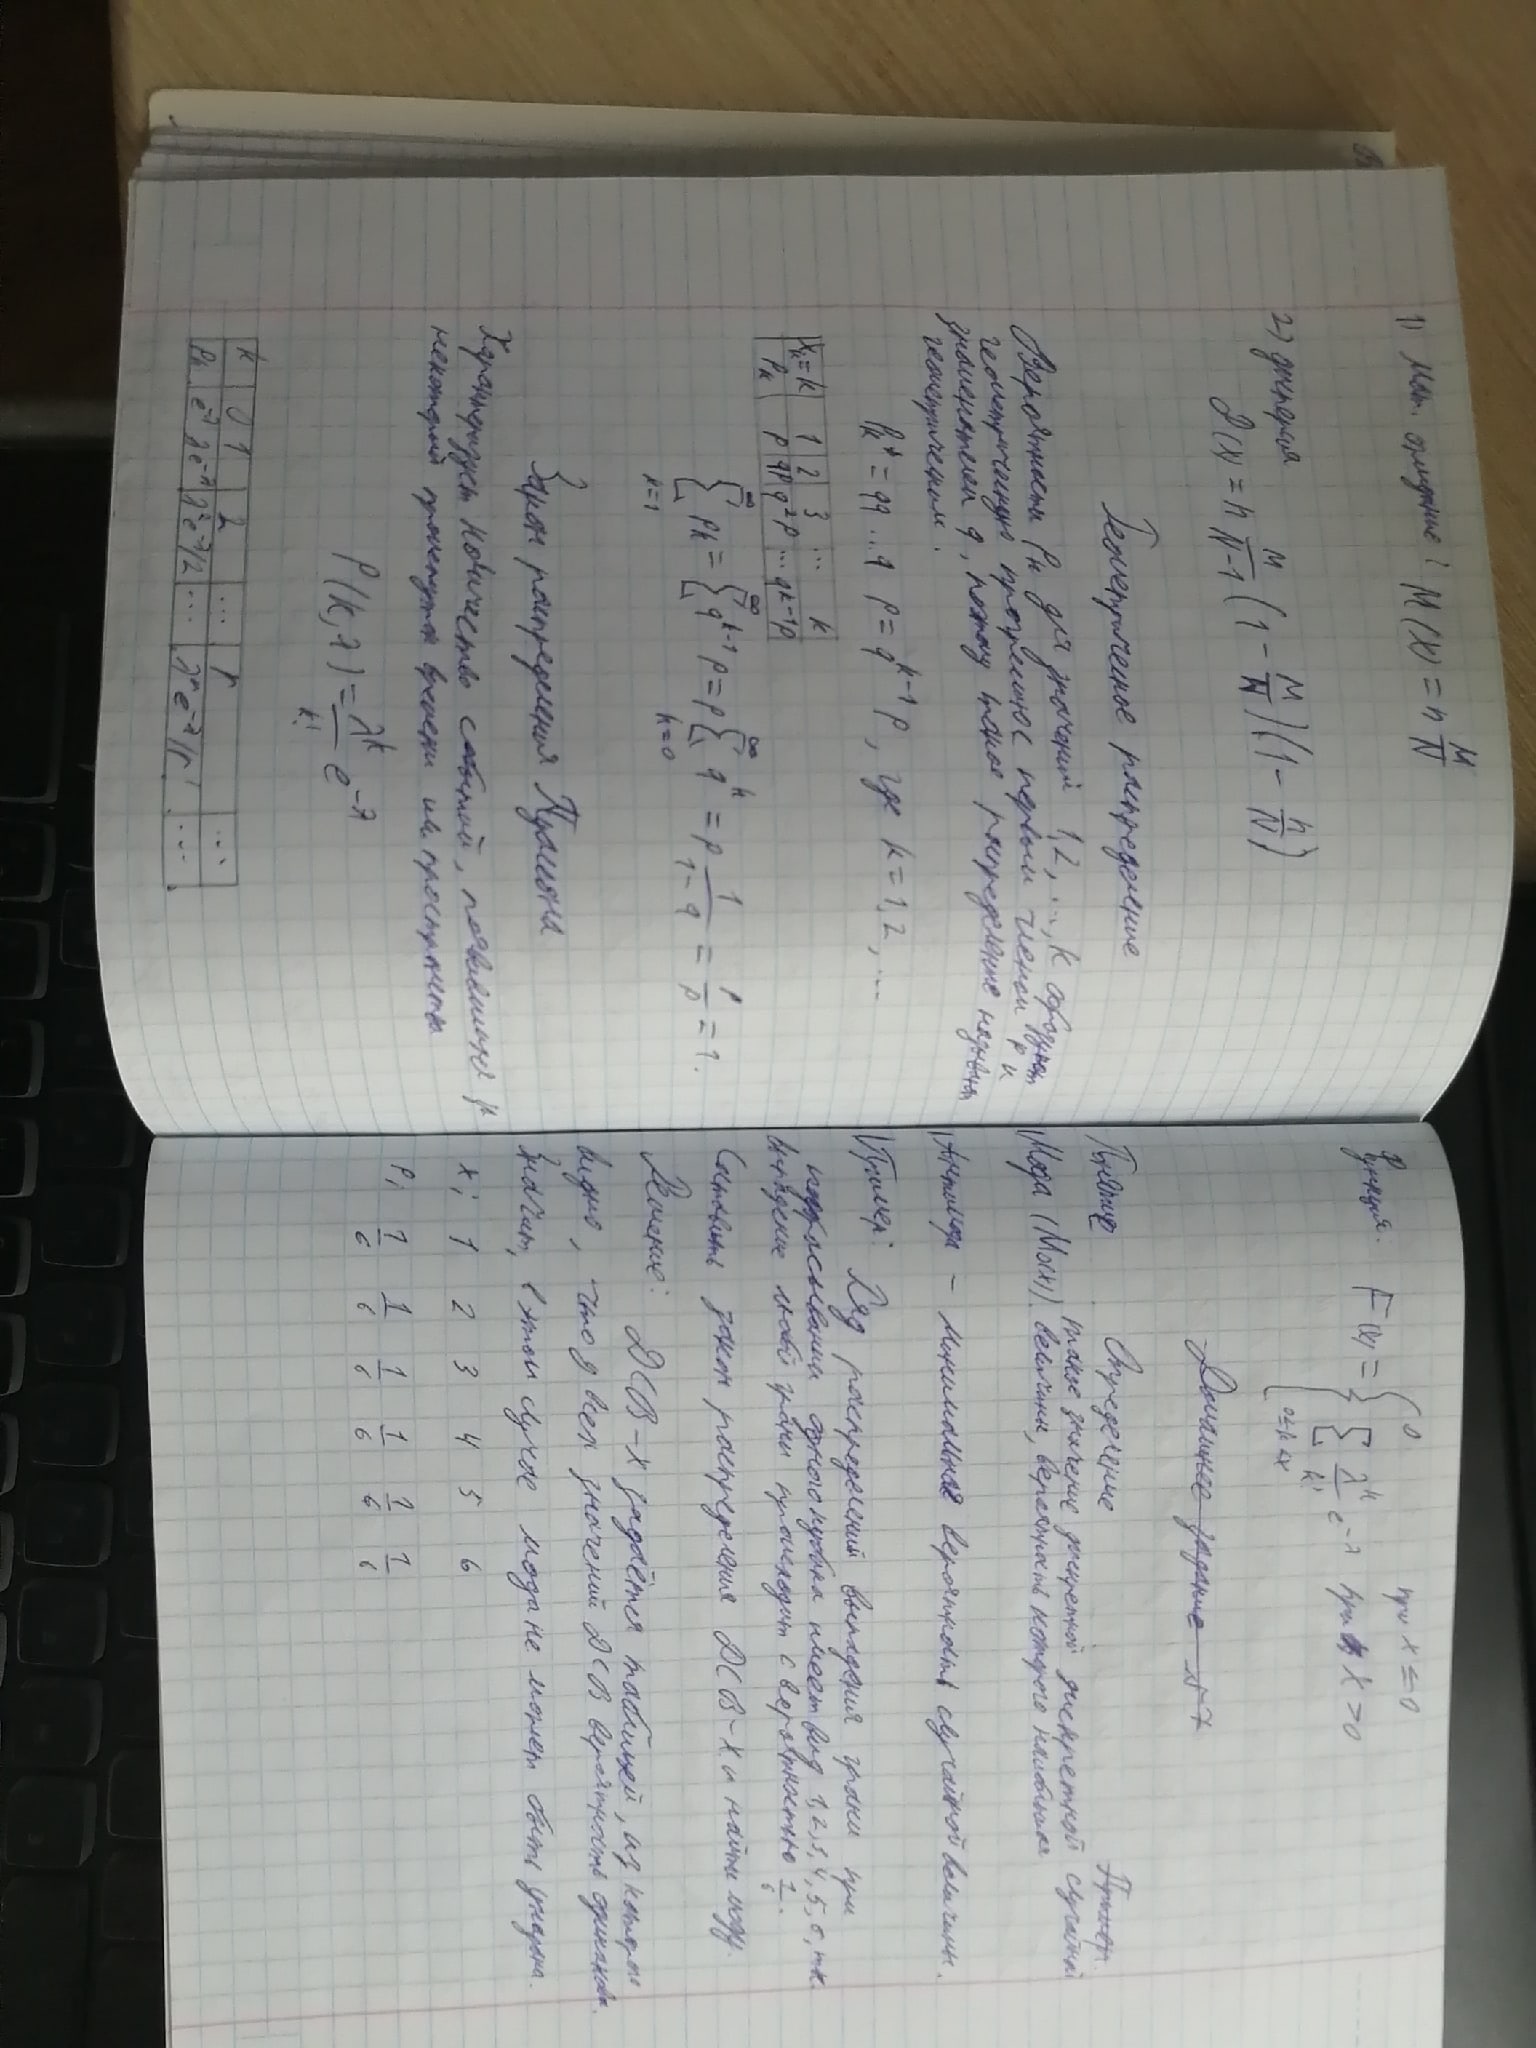 1) Мат. ожидание: M(x) = n M/N
2) дисперсия
D(x) = n M/N-1 (1 - M/N)(1 - n/N)
Геометрическое распределение
Вероятности Pk для значений 1,2,..., k образуют
геометрическую прогрессию с первым членом p и
знаменателем q, поэтому такое распределение
геометрическим.
Pk = qq...q p = q^k-1 p, где k = 1,2,...
Xk=k | 1 | 2 | 3 | ... | k
Pk | p | qp | q^2p | ... | q^k-1p
∑ k=1 ∞ Pk = ∑ ∞ q^k-1 p = p ∑ k=0 ∞ q^k = p 1/1-q = p/p = 1.
Закон распределения Пуассона
количество событий, появившихся в
некоторый промежуток времени или пространства
P(k,λ) = λ^k/k! e^-λ
k | 0 | 1 | 2 | ... | k | ...
Pk | e^-λ | λe^-λ | λ^2e^-λ/2 | ... | λ^k e^-λ/k! | ...
Функция: F(x) = { 0 при x ≤ 0
∑ 0≤k<x λ^k/k! e^-λ при x > 0
Домашнее задание №7
Понятие Определение Пример
Мода (Mo(x)) такое значение дискретной дискретной случайной
величины, вероятность которого наибольшая
Антимода - минимальное вероятность случайной величины.
Пример: Ряд распределений выпадения грани при
подбрасывании одного кубика имеет вид 1,2,3,4,5,6, т.к.
выпадение любой грани происходит с вероятностью 1/6.
Составить закон распределения ДСВ-X и найти моду.
Решение: ДСВ-X задаётся таблицей, из которой
видно, что у всех значений ДСВ вероятность одинакова.
Значит, в этом случае мода не может быть указана.
xi 1 2 3 4 5 6
Pi 1/6 1/6 1/6 1/6 1/6 1/6